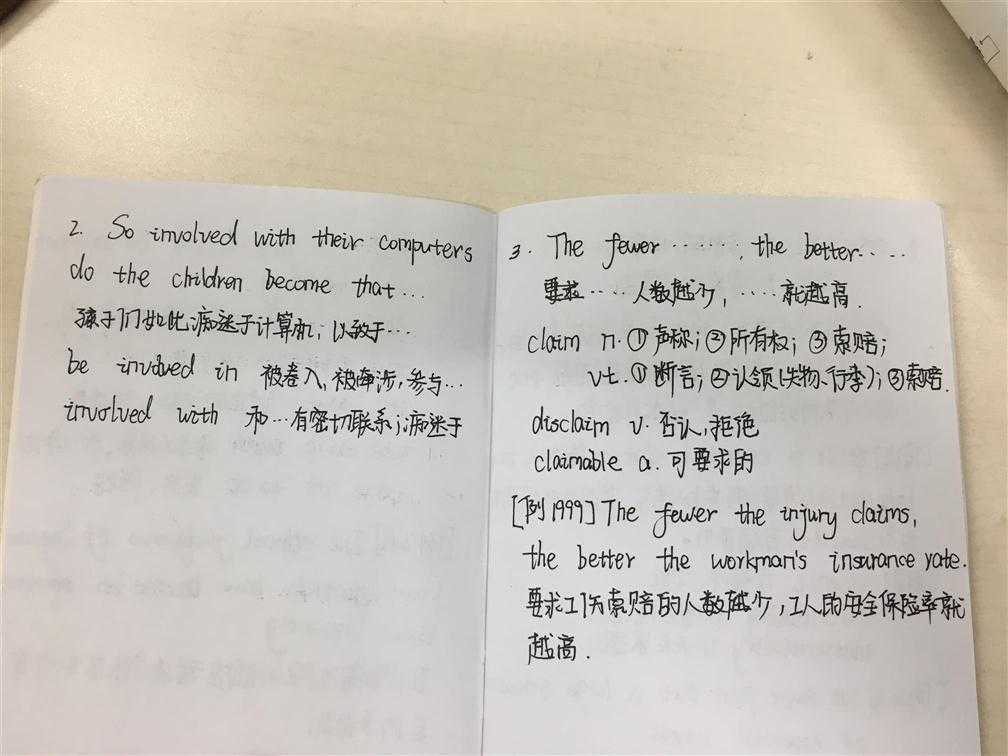 2. So involved with their computers
do the children become that...
孩子们如此痴迷于计算机,以致于...
be involved in 被卷入,被牵涉,参与...
involved with 和...有密切联系;痴迷于
3. The fewer ......, the better.....
.... 人数越少, .... 就越高.
claim n. ① 声称; ② 所有权; ③ 索赔;
vt. ① 断言; ② 认领(失物、行李); ③ 索赔.
disclaim v. 否认,拒绝
claimable a. 可要求的
[例1999] The fewer the injury claims,
the better the workman's insurance rate.
要求工伤索赔的人数越少,工人的安全保险率就
越高.